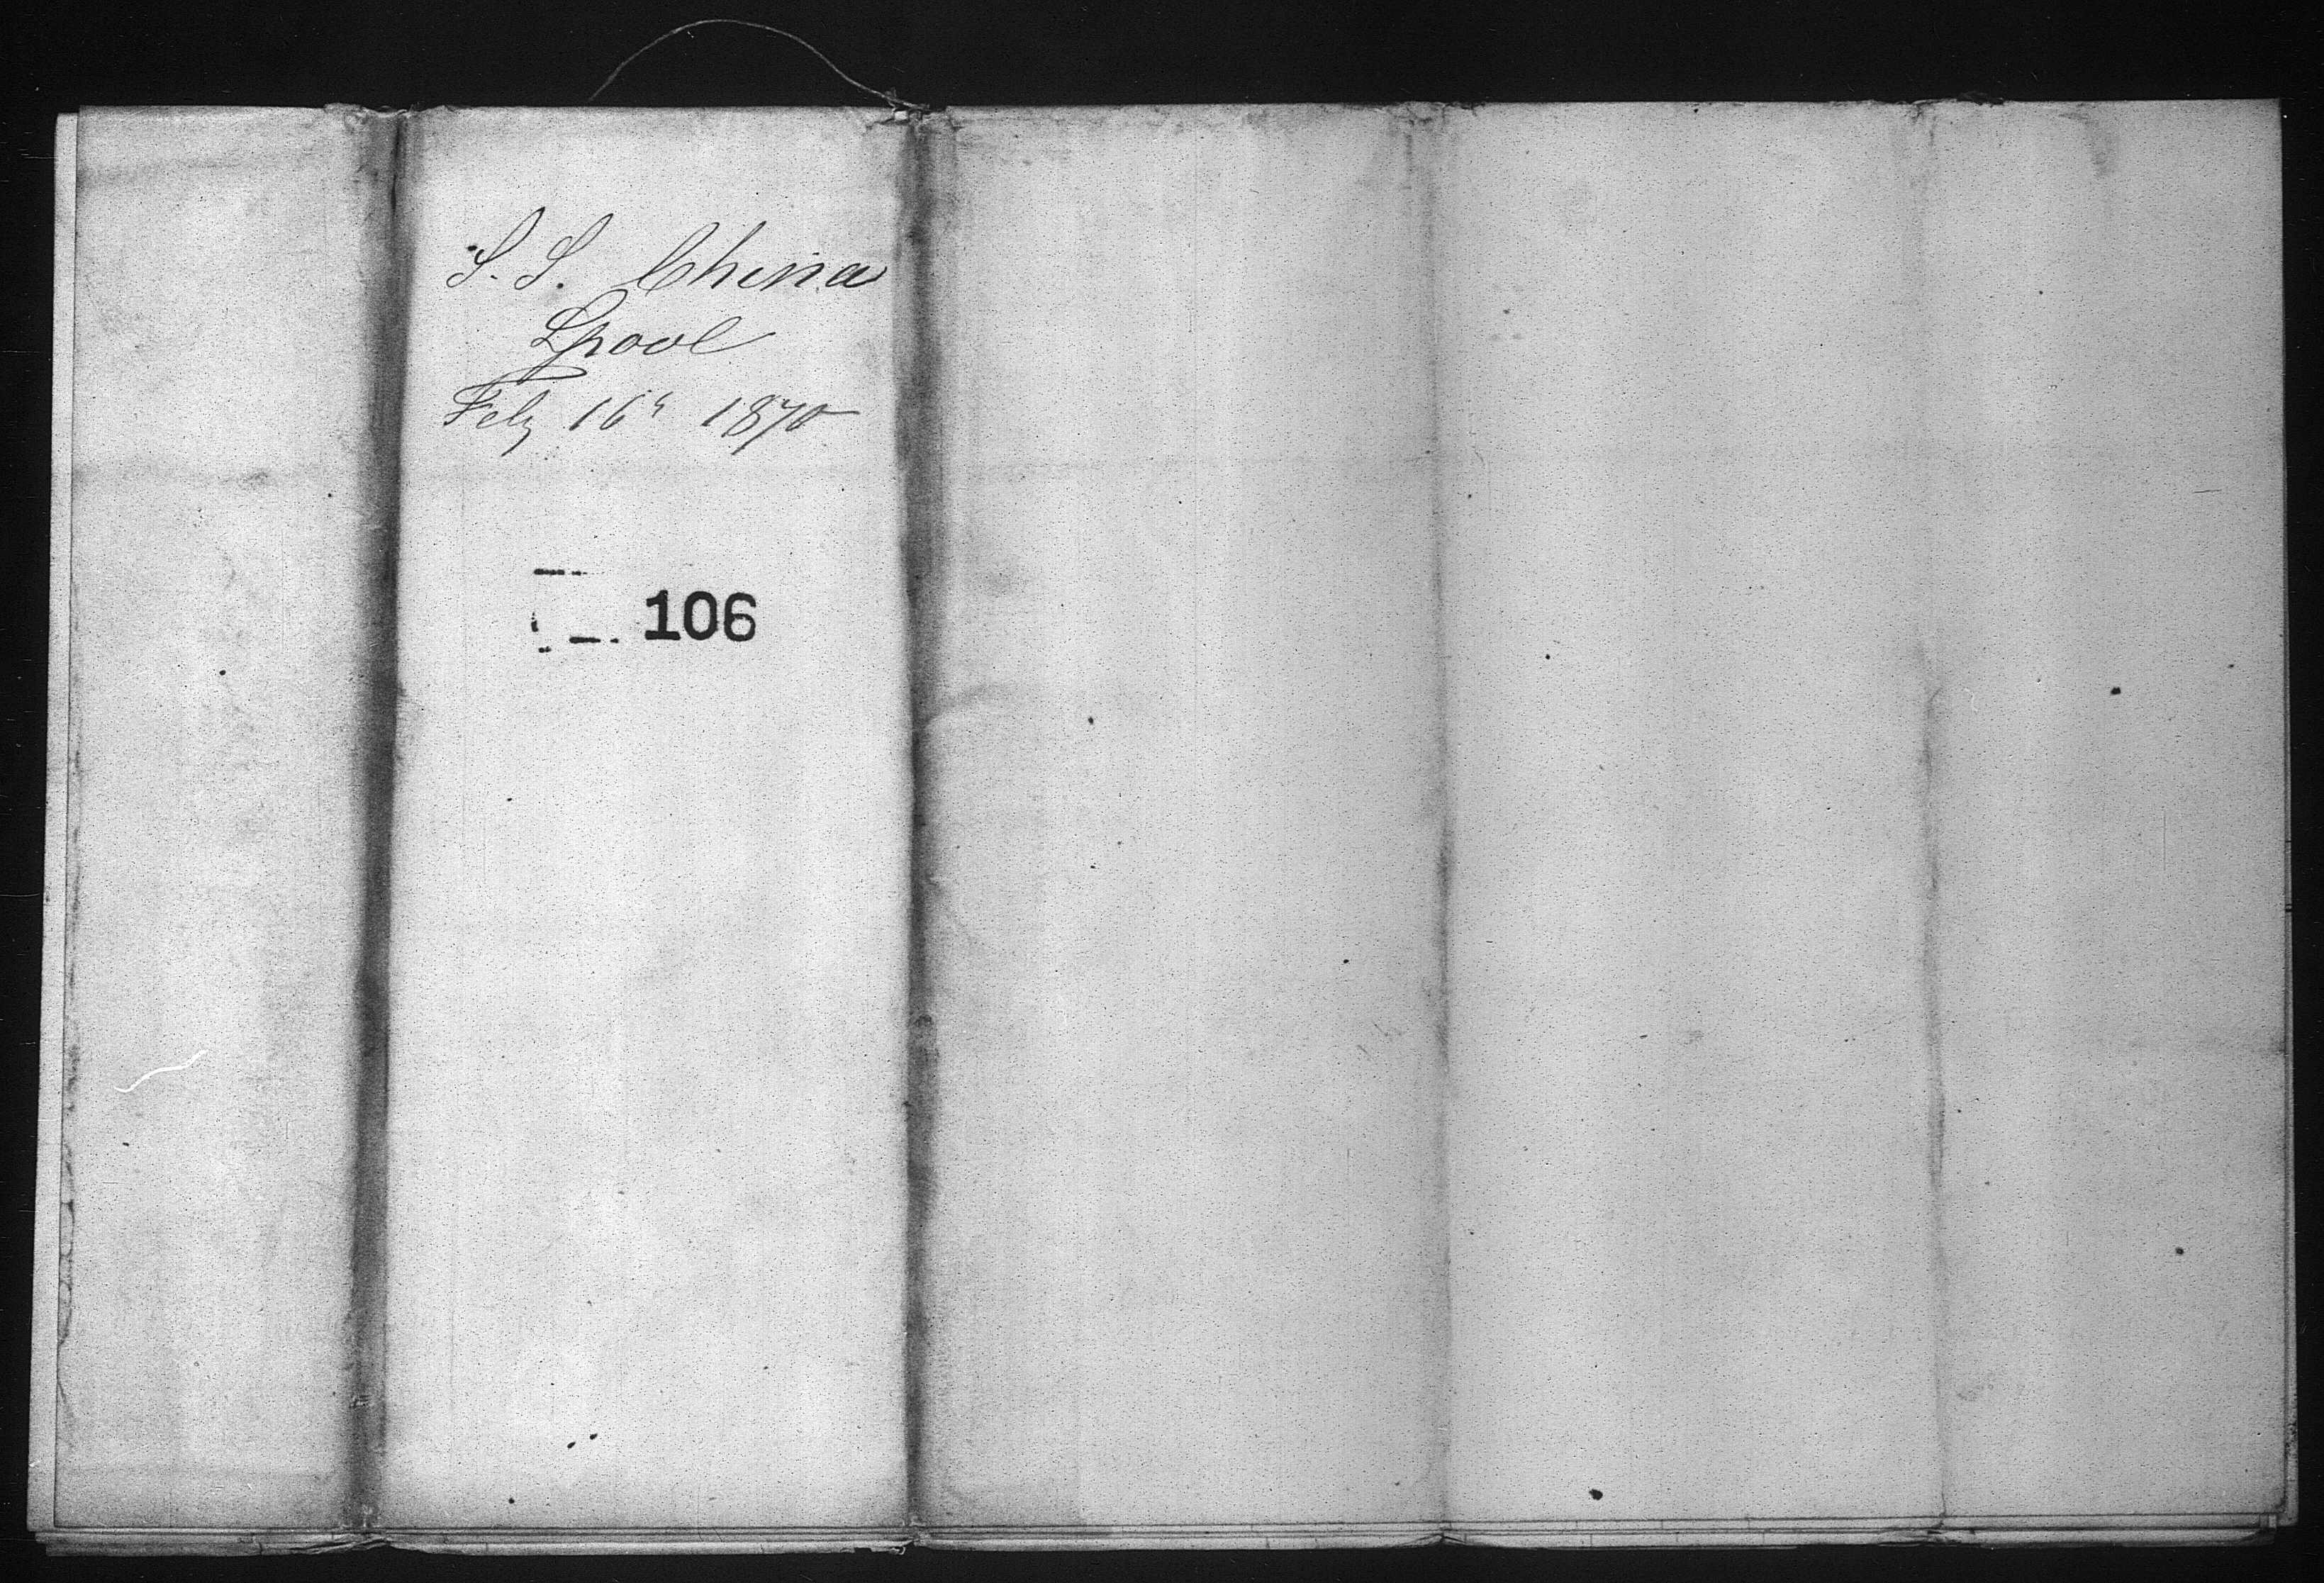 S. S. China
Lpool
Feby 16th 1870
106